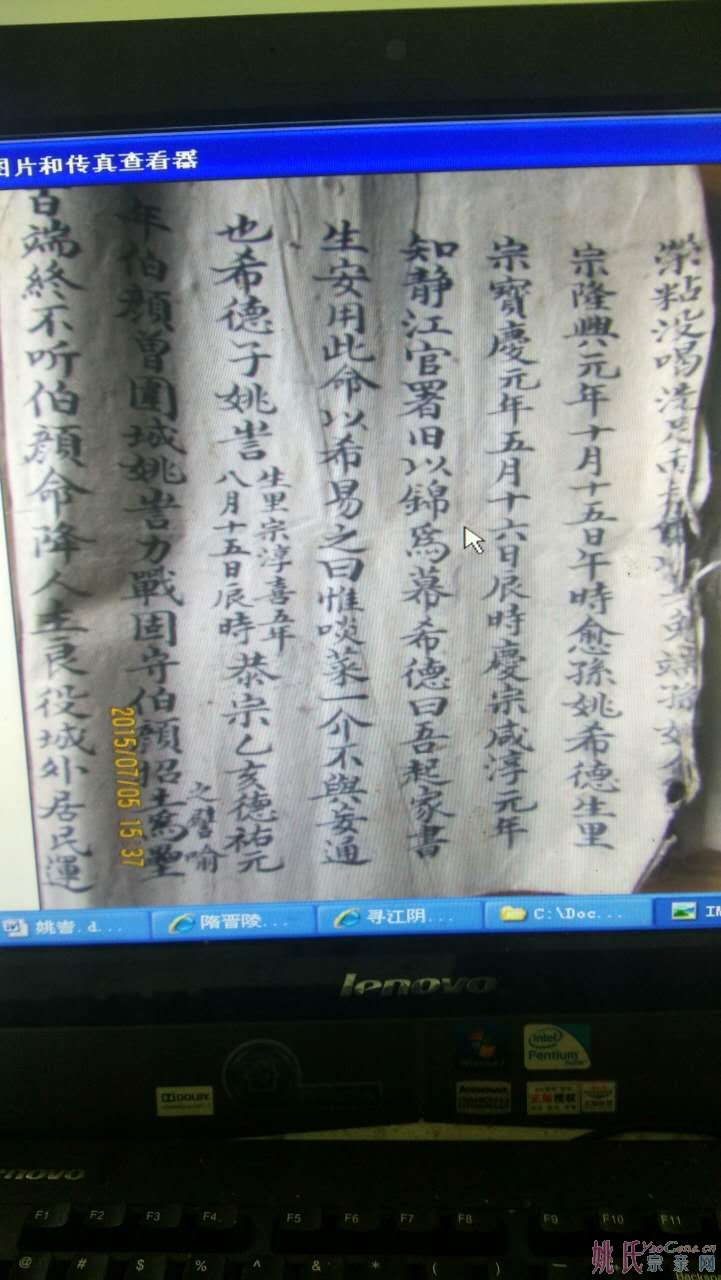 图片和传真查看器
荣粘没喝
宗隆興元年十月十五日午時愈孫姚希德生里
宗寶慶元年五月十六日辰時慶宗咸淳元年
知静江官署旧以錦為幕希德曰吾起家書
生安用此命以希易之曰惟啖菜一介不與妄通
也希德子姚訔
生里宗淳喜五年
八月十五日辰時
恭宗乙亥德祐元
年伯顔曾圍城姚訔力戰固守伯顔招
之譬喻
端终不听伯顔命降人王良役城外居民運
2015/07/05 15:37
姚訔.d...
隋晋陵...
寻江阴...
C:\Doc...
IM
lenovo
DOLBY
intel
Pentium
lenovo
F1 F2 F3 F4 F5 F6 F7 F8 F9 F10 F11
@ # $ % ^ & * ( )
姚氏宗亲网
YaoGens.cn